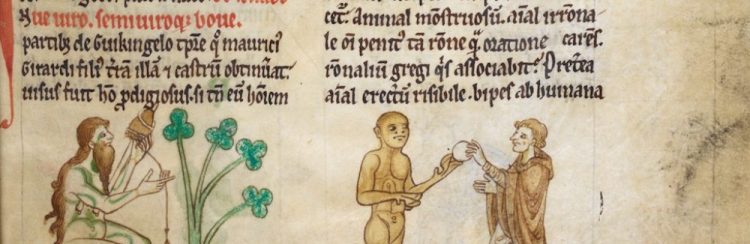 que uiro. semiuiroq; boue.
partib; de Guikingelo tpre q̃ mauricĩ
Girardi filĩ t̃ram illã ⁊ castrũ obtinũat.
uisus fuit hõ p̱digiosus. si tñ eũ hõiem
cet̃. Animal mõstruosũ. aĩal irrona
le oĩ penit' tã rõne q̃ oratione carẽs.
ronaliũ gregi q̃s associabit? Pret̃ea
aĩal erectũ risibile. bipes ab humana